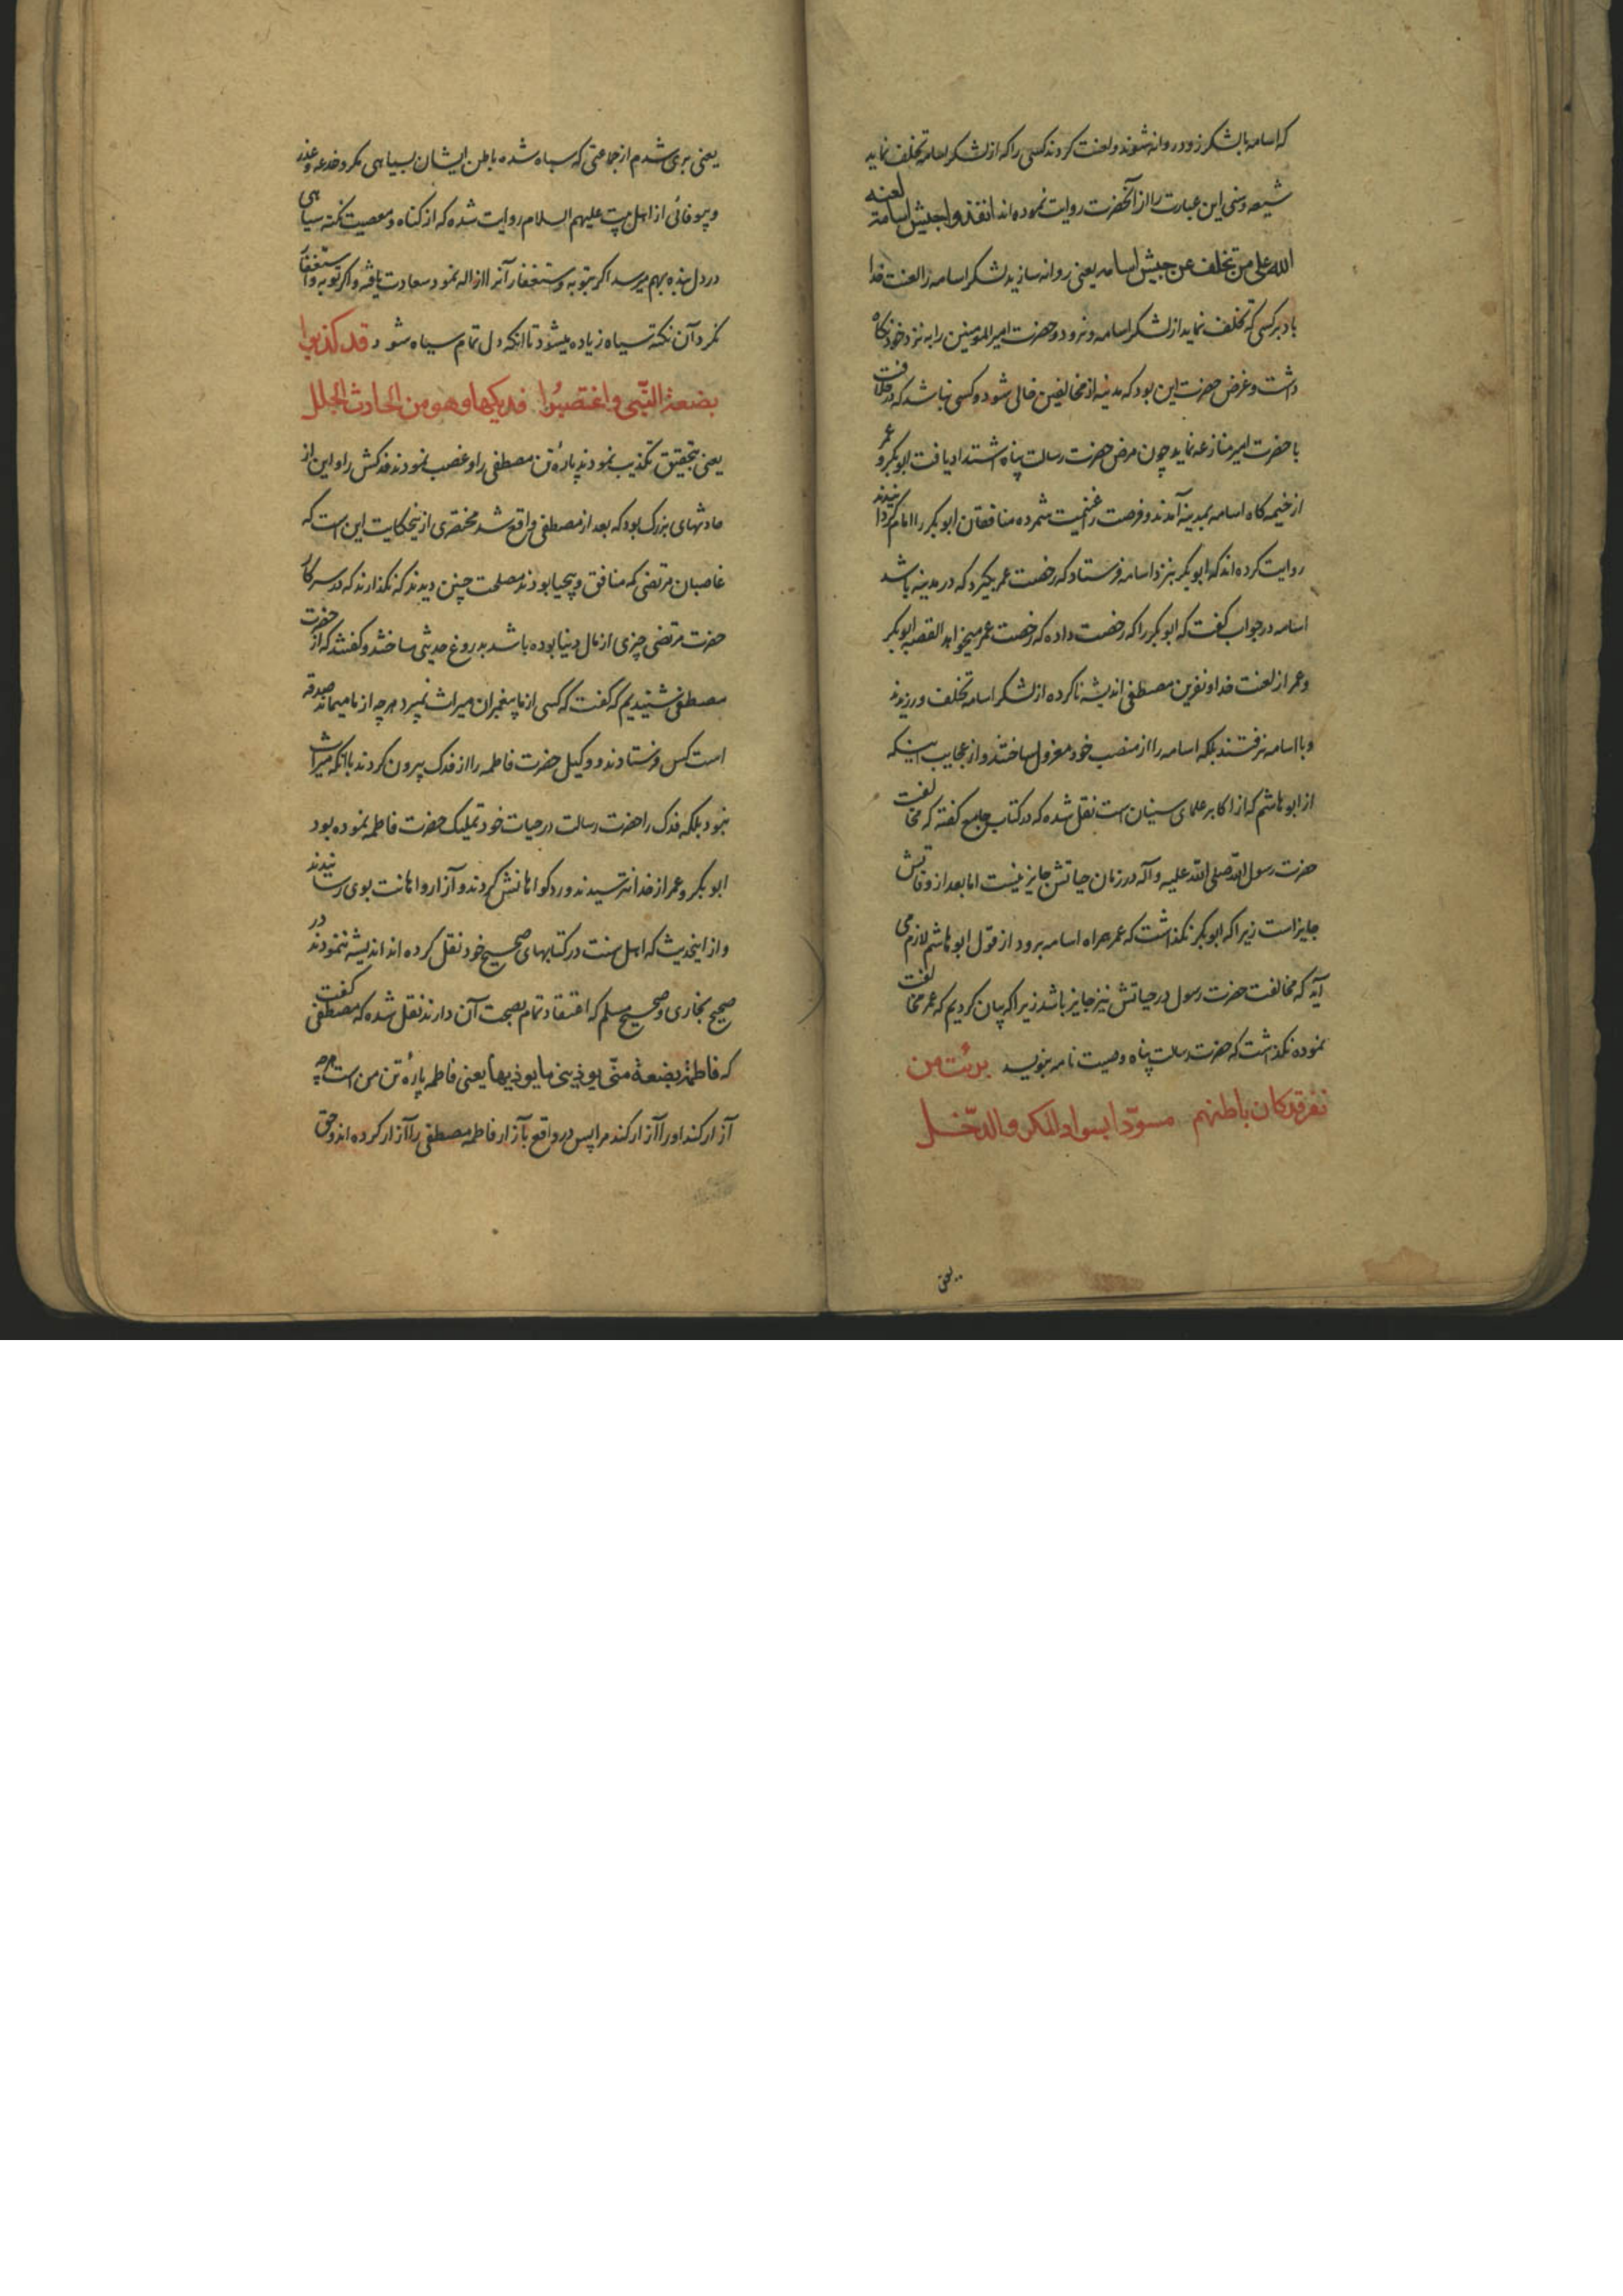 که اسامه با لشکر زود روانه شوند و لعنت کردند کسی را که از لشکر اسامه تخلف نماید
شیعه و سنی این عبارت را از آنحضرت روایت نموده اند انفذوا جیش اسامة لعنه
الله علی من تخلف عن جیش اسامه یعنی روانه سازید لشکر اسامه را لعنت خدا
باد بر کسی که تخلف نماید از لشکر اسامه و نرود و حضرت امیر المومنین را به نزد خود نکاه
داشت و غرض حضرت این بود که مدینه از مخالفین خالی شود و کسی نباشد که در خلافت
با حضرت امیر منازعه نماید چون مرض حضرت رسالت پناه اشتداد یافت ابوبکر و عمر
از خیمه کاه اسامه بمدینه آمدند و فرصت را غنیمت شمرده منافقان ابوبکر را امام کردانیدند
روایت کرده اند که ابوبکر بنزد اسامه فرستاد که رخصت عمر بگیرد که در مدینه باشد
اسامه در جواب گفت که ابوبکر را که رخصت داده که رخصت عمر میخواهد القصه ابوبکر
و عمر از لعنت خدا و نفرین مصطفی اندیشه ناکرده از لشکر اسامه تخلف ورزیدند
و با اسامه نرفتند بلکه اسامه را از منصب خود معزول ساختند و از عجایب اینکه
از ابو هاشم که از اکابر علمای سنیان است نقل شده که در کتاب جامع گفته که مخالفت
حضرت رسول الله صلی الله علیه و آله در زمان حیاتش جایز نیست اما بعد از وفاتش
جایز است زیرا که ابوبکر نگذاشت که عمر همراه اسامه برود از قول ابو هاشم لازم می
آید که مخالفت حضرت رسول در حیاتش نیز جایز باشد زیرا که بیان کردیم که عمر مخالفت
نموده نگذاشت که حضرت رسالت پناه وصیت نامه بنویسد برئت من
نفر قد کان باطنهم مسوّدا بسواد المکر و الدّخل
یعنی
یعنی بری شدم از جماعتی که سیاه شده باطن ایشان بسیاهی مکر و خدعه و غدر
و بیوفائی از اهل بیت علیهم السلام روایت شده که از کناه و معصیت نکته سیاهی
در دل بنده بهم میرسد اکر بتوبه و استغفار آنرا ازاله نمود سعادت یافته و اکر توبه و استغفار
نکرد آن نکته سیاه زیاده میشود تا انکه دل تمام سیاه شود قد کذبوا
بضعة النّبی و اغتصبُوا فدیکها و هو من الحادث الجلل
یعنی بتحقیق تکذیب نمودند پارهٔ تن مصطفی را و غصب نمودند فدکش را و این از
حادثهای بزرک بود که بعد از مصطفی واقع شد مختصری از ینحکایت این است که
غاصبان مرتضی که منافق و بیحیا بودند مصلحت چنین دیدند که نگذارند که در سرکار
حضرت مرتضی چیزی از مال دنیا بوده باشد بدروغ حدیثی ساختند و گفتند که از حضرت
مصطفی شنیدیم که گفت که کسی از ما پیغمبران میراث نمیبرد هرچه از ما میماند صدقه
است کس فرستادند و وکیل حضرت فاطمه را از فدک بیرون کردند با آنکه میراث
نبود بلکه فدک را حضرت رسالت در حیات خود تملیک حضرت فاطمه نموده بود
ابوبکر و عمر از خدا نترسیدند و رد کواهانش کردند و آزار و اهانت بوی رسانیدند
و از اینحدیث که اهل سنت در کتابهای صحیح خود نقل کرده اند اندیشه ننمودند در
صحیح بخاری و صحیح مسلم که اعتقاد تمام بصحت آن دارند نقل شده که مصطفی گفت
که فاطمة بضعة منّی یوذینی ما یوذیها یعنی فاطمه پارهٔ تن من است هرچه
آزار کند او را آزار کند مرا پس در واقع بآزار فاطمه مصطفی را آزار کرده اند و حق